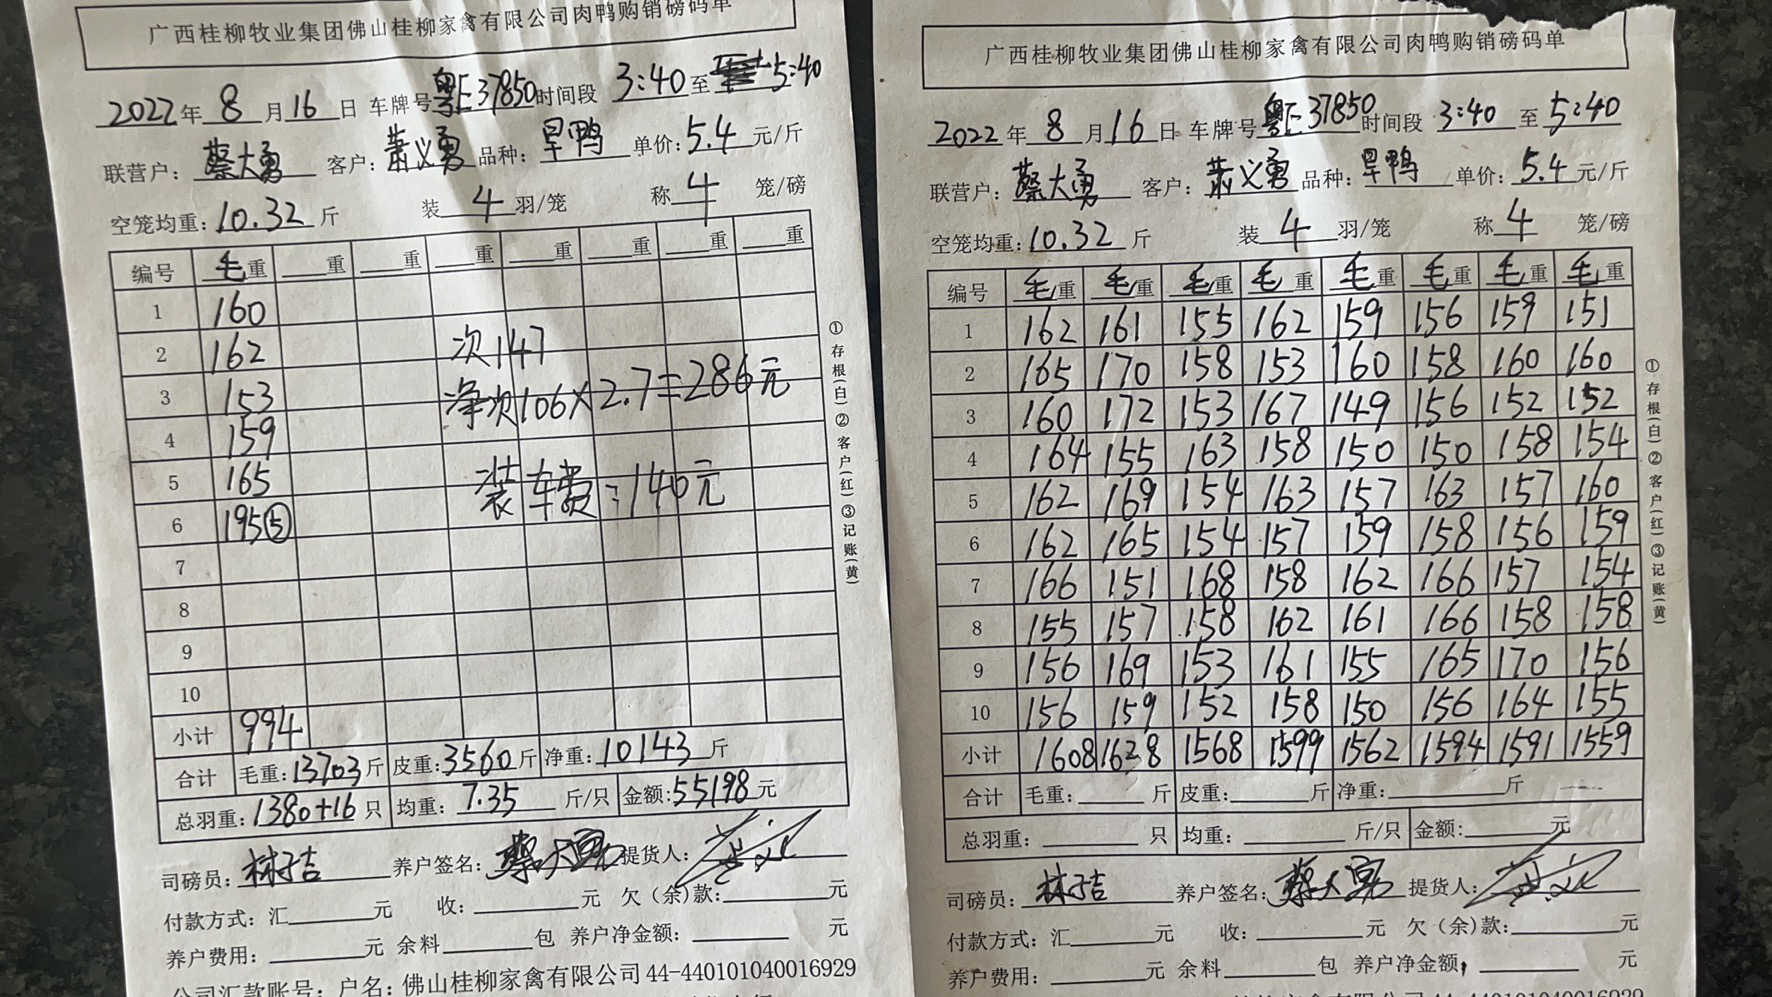 广西桂柳牧业集团佛山桂柳家禽有限公司肉鸭购销磅码单
2022年 8 月 16 日 车牌号 粤E37850 时间段 3:40 至 5:40
联营户: 蔡大勇 客户: 萧义勇 品种: 旱鸭 单价: 5.4 元/斤
空笼均重: 10.32 斤 装 4 羽/笼 称 4 笼/磅
编号 毛重 重 重 重 重 重 重 重
1 160
2 162 次147
3 153 净次106×2.7=286元
4 159
5 165 装车费:140元
6 195⑤
7
8
9
10
小计 994
合计 毛重: 13703 斤 皮重: 3560 斤 净重: 10143 斤
总羽重: 1380+16 只 均重: 7.35 斤/只 金额: 55198 元
司磅员: 林子吉 养户签名: 蔡大勇 提货人:
付款方式: 汇 元 收: 元 欠(余)款: 元
养户费用: 元 余料 包 养户净金额: 元
公司汇款账号: 户名: 佛山桂柳家禽有限公司 44-440101040016929
①存根(白)②客户(红)③记账(黄)
广西桂柳牧业集团佛山桂柳家禽有限公司肉鸭购销磅码单
2022 年 8 月 16 日 车牌号 粤E37850 时间段 3:40 至 5:40
联营户: 蔡大勇 客户: 萧义勇 品种: 旱鸭 单价: 5.4 元/斤
空笼均重: 10.32 斤 装 4 羽/笼 称 4 笼/磅
编号 毛重 毛重 毛重 毛重 毛重 毛重 毛重 毛重
1 162 161 155 162 159 156 159 151
2 165 170 158 153 160 158 160 160
3 160 172 153 167 149 156 152 152
4 164 155 163 158 150 150 158 154
5 162 169 154 163 157 163 157 160
6 162 165 154 157 159 158 156 159
7 166 151 168 158 162 166 157 154
8 155 157 158 162 161 166 158 158
9 156 169 153 161 155 165 170 156
10 156 159 152 158 150 156 164 155
小计 1608 1628 1568 1599 1562 1594 1591 1559
合计 毛重: 斤 皮重: 斤 净重: 斤
总羽重: 只 均重: 斤/只 金额: 元
司磅员: 林子吉 养户签名: 蔡大勇 提货人:
付款方式: 汇 元 收: 元 欠(余)款: 元
养户费用: 元 余料 包 养户净金额: 元
①存根(白)②客户(红)③记账(黄)